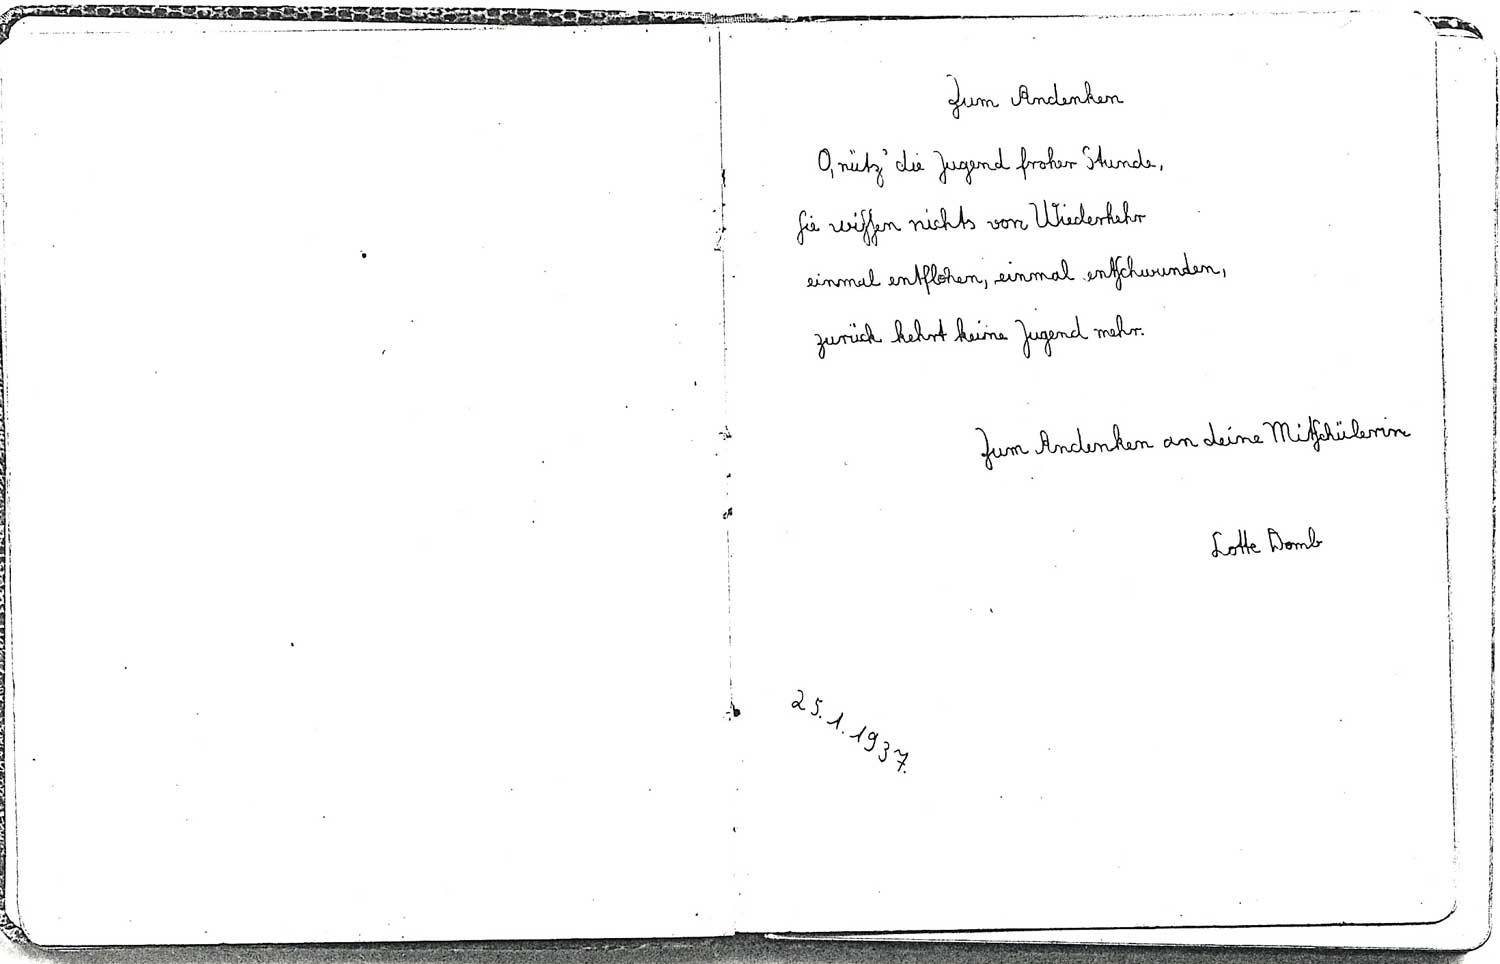 Zum Andenken
O, nütz' die Jugend froher Stunde,
sie wissen nichts von Wiederkehr
einmal entflohen, einmal entschwunden,
zurück kehrt keine Jugend mehr.
Zum Andenken an deine Mitschülerin
Lotte Domb
25.1.1937.